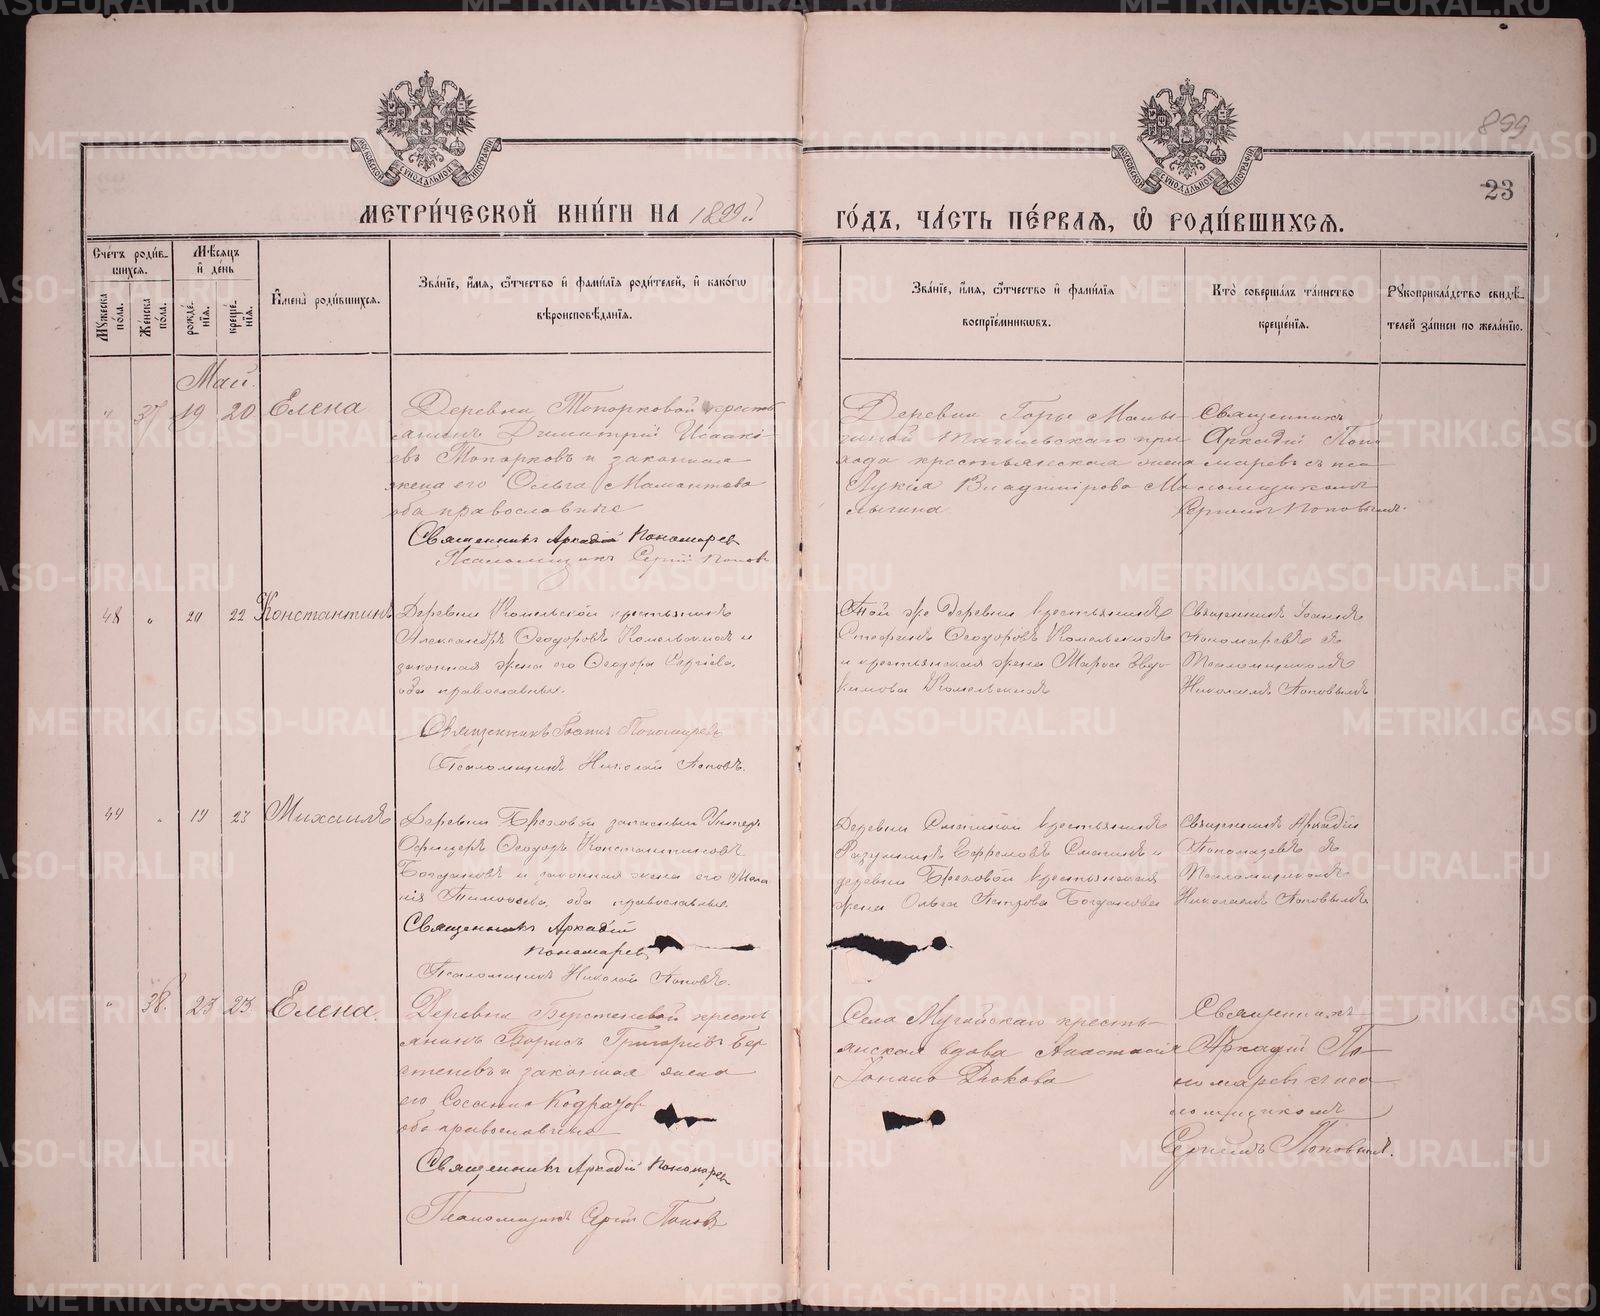 899
23
МЕТРИЧЕСКОЙ КНИГИ НА 1899й
ГОДЪ, ЧАСТЬ ПЕРВАЯ, Ѿ РОДИВШИХСЯ.
МОСКОВСКОЙ СУНОДАЛЬНОЙ ТИПОГРАФІИ
МОСКОВСКОЙ СУНОДАЛЬНОЙ ТИПОГРАФІИ
Счетъ родив-
шихся.
Мужеска пола.
Женска пола.
Мѣсяцъ
и день
рожде-
нія.
креще-
нія.
Имена родившихся.
Званіе, имя, отчество и фамилія родителей, и какогѡ
вѣроисповѣданія.
Званіе, имя, отчество и фамилія
воспріемникѡвъ.
Кто совершалъ таинство
крещенія.
Рукоприкладство свидѣ-
телей записи по желанію.
Май
" 37 19 20 Елена
Деревни Топорковой кресть
янинъ Димитрій Исааки-
евъ Топорковъ и законная
жена его Ольга Мамонтова
оба православные
Священникъ Аркадій Пономарев
Псаломщикъ Сергій Попов
Деревни Горы
Тагильскаго при
хода крестьянская жена
Лукія Владимірова
Священникъ
Аркадій Поно
маревъ съ пса
ломщикомъ
Сергіемъ Поповымъ.
48 " 20 22 Константинъ
Деревни Комельской крестьянинъ
Александръ Ѳеодоровъ Комельскихъ и
законная жена его Ѳеодора Сергіева,
оба православные.
Священникъ Іоаннъ Пономаревъ
Псаломщикъ Николай Поповъ.
Той же деревни крестьянинъ
Стефанъ Ѳеодоровъ Комельскихъ
и крестьянская жена Марѳа Евдо-
кимова Комельскихъ
Священникъ Іоаннъ
Пономаревъ съ
Псаломщикомъ
Николаемъ Поповымъ
49 " 19 23 Михаилъ
Деревни Бреховой запасный Унтеръ
Офицеръ Ѳеодоръ Константиновъ
Богдановъ и законная жена его Мела
нія Тимоѳеева, оба православные.
Священникъ Аркадій
Пономарев
Псаломщикъ Николай Поповъ.
Деревни крестьянинъ
Разумникъ Ефремовъ и
деревни Бреховой крестьянская
жена Ольга Петрова Богданова
Священникъ Аркадій
Пономаревъ съ
Псаломщикомъ
Николаемъ Поповымъ
" 38. 23 23 Елена.
Деревни Берстеневой кресть
янинъ Борисъ Григорьевъ Бер
стеневъ и законная жена
его Сосанна
оба православные
Священникъ Аркадій Пономарев
Псаломщикъ Сергій Поповъ
Села Мугайскаго кресть-
янская вдова Анастасія
Дюкова
Священникъ
Аркадій По-
номаревъ съ пса
ломщикомъ
Сергіемъ Поповымъ.
METRIKI.GASO-URAL.RU